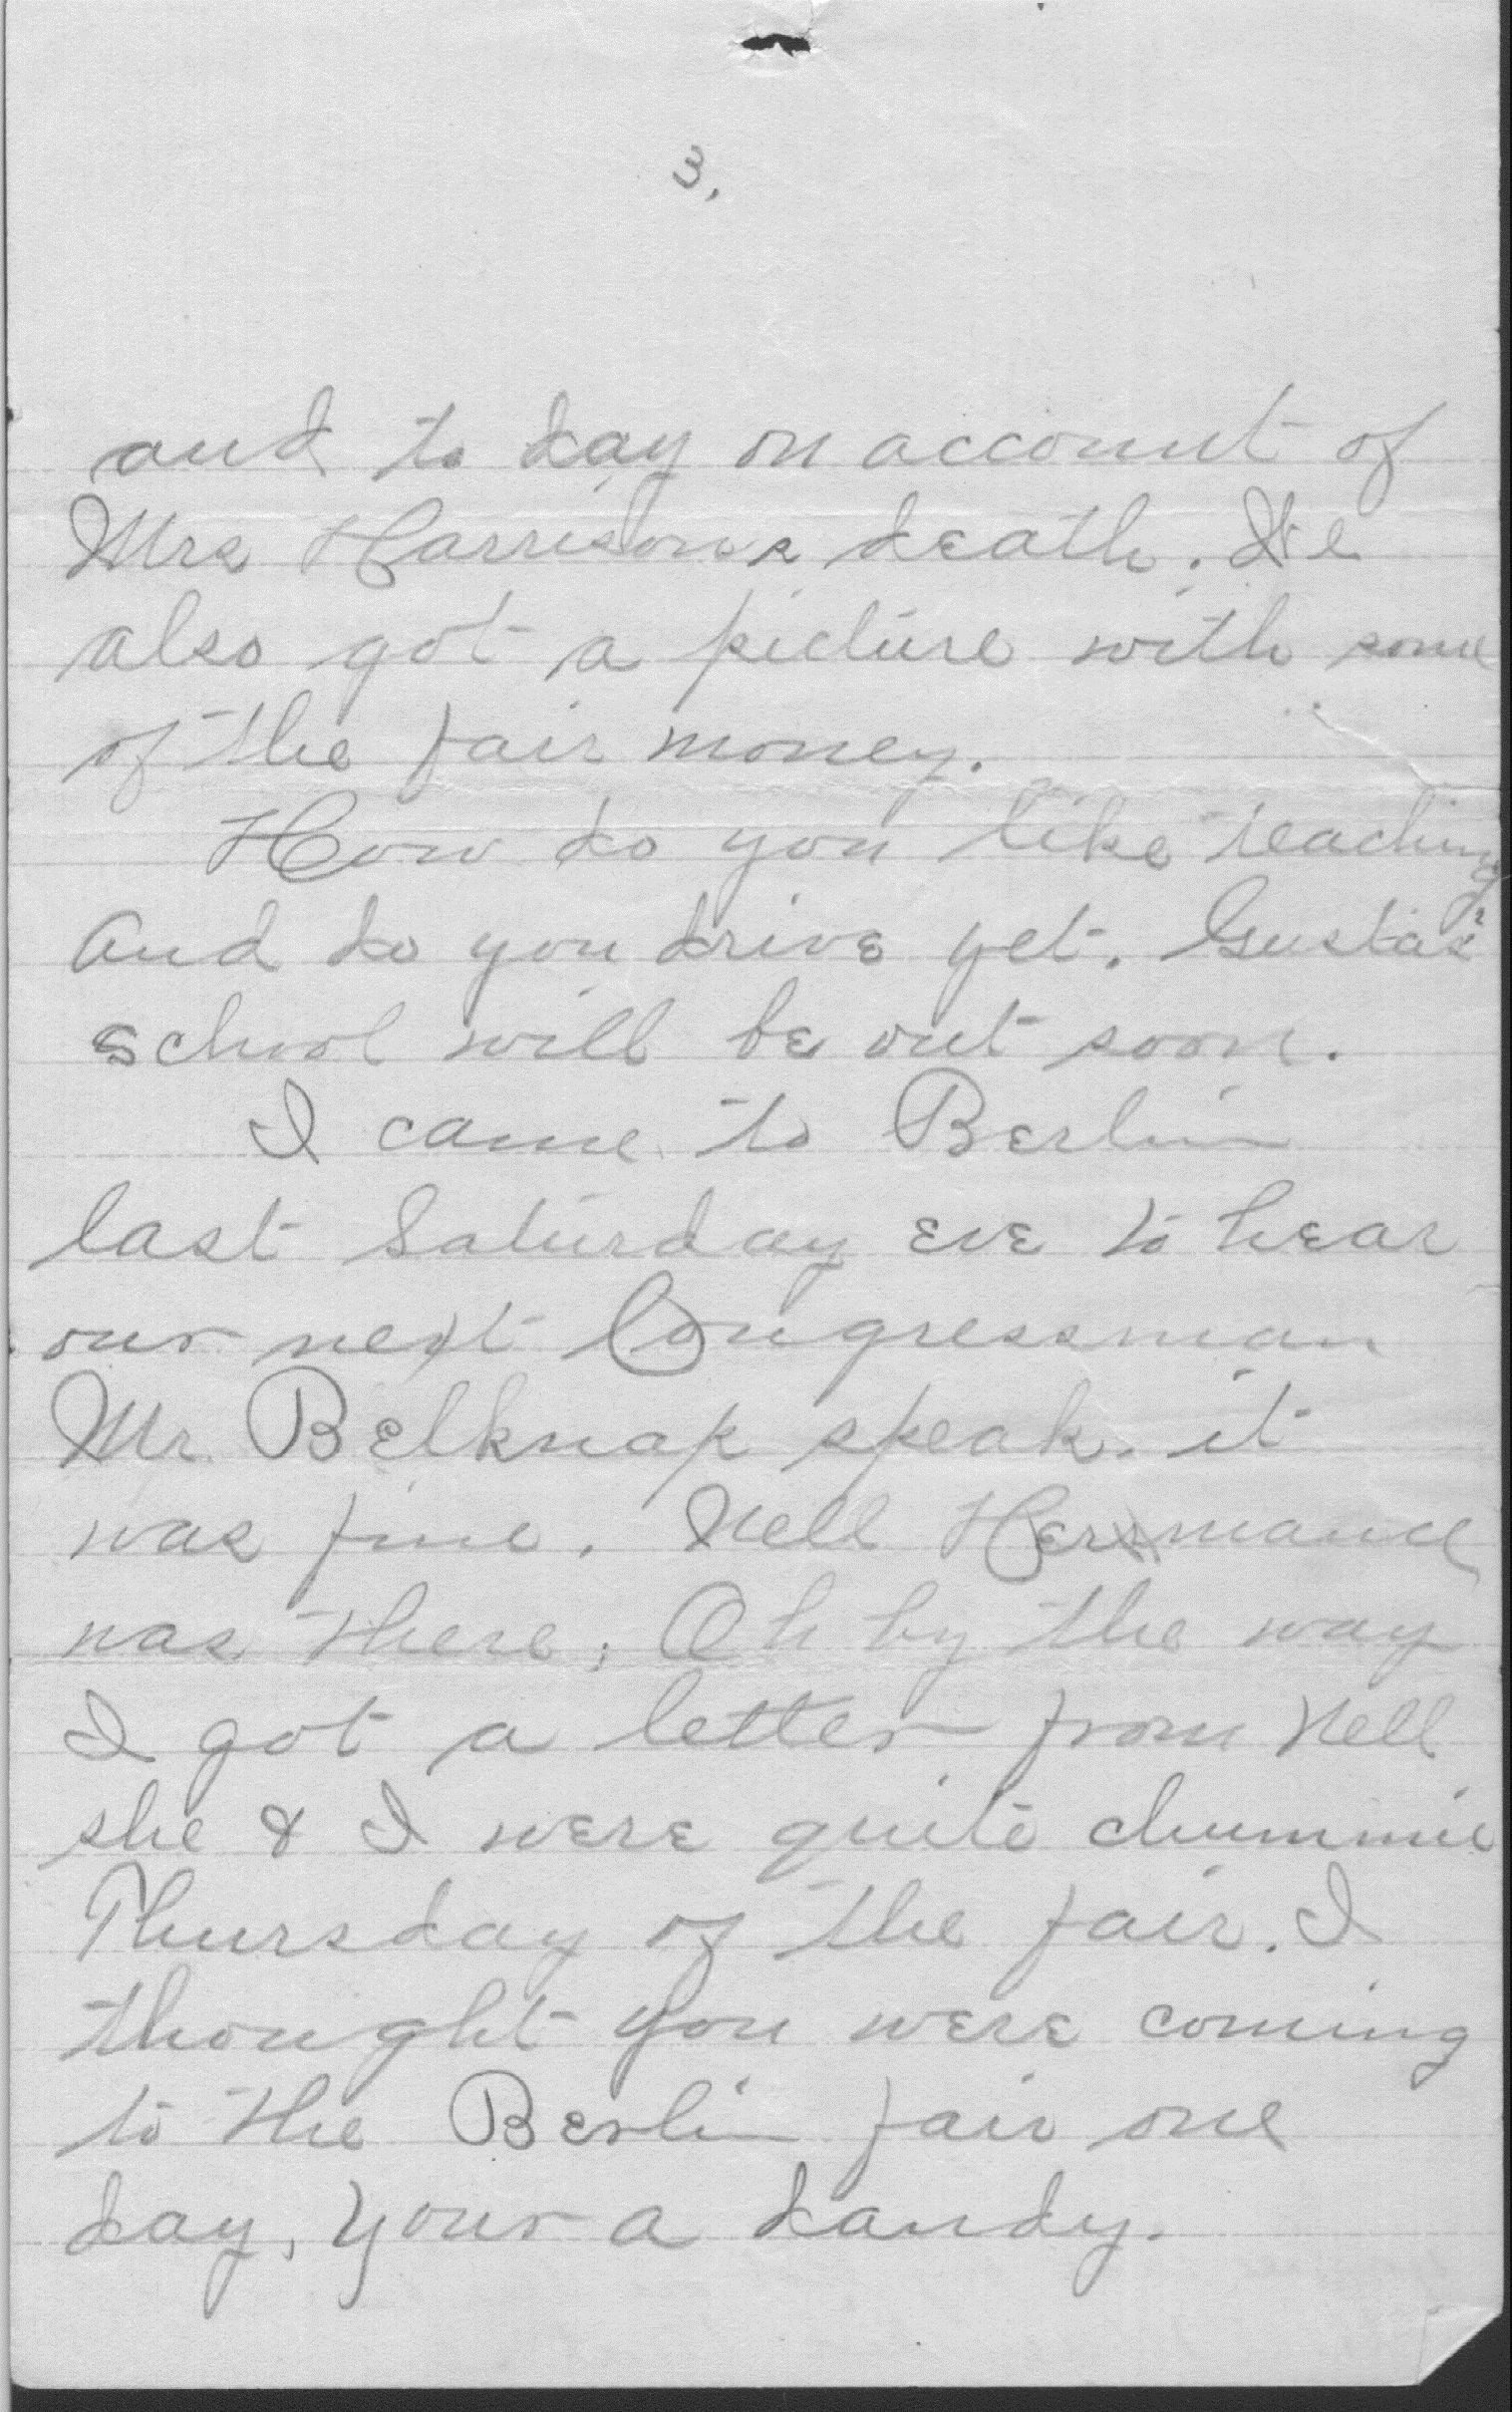 3.
and to day on account of
Mrs Harrisons death. We
also got a picture with some
of the fair money.
How do you like teaching
And do you drive yet. Gustas
school will be out soon.
I came to Berlin
last Saturday eve to hear
our next Congressman
Mr. Belknap speak. it
was fine. Nell Hermance
was there; Oh by the way
I got a letter from Nell
she & I were quite chummie
Thursday of the fair. I
thought you were coming
to the Berlin fair one
day, your a dandy.